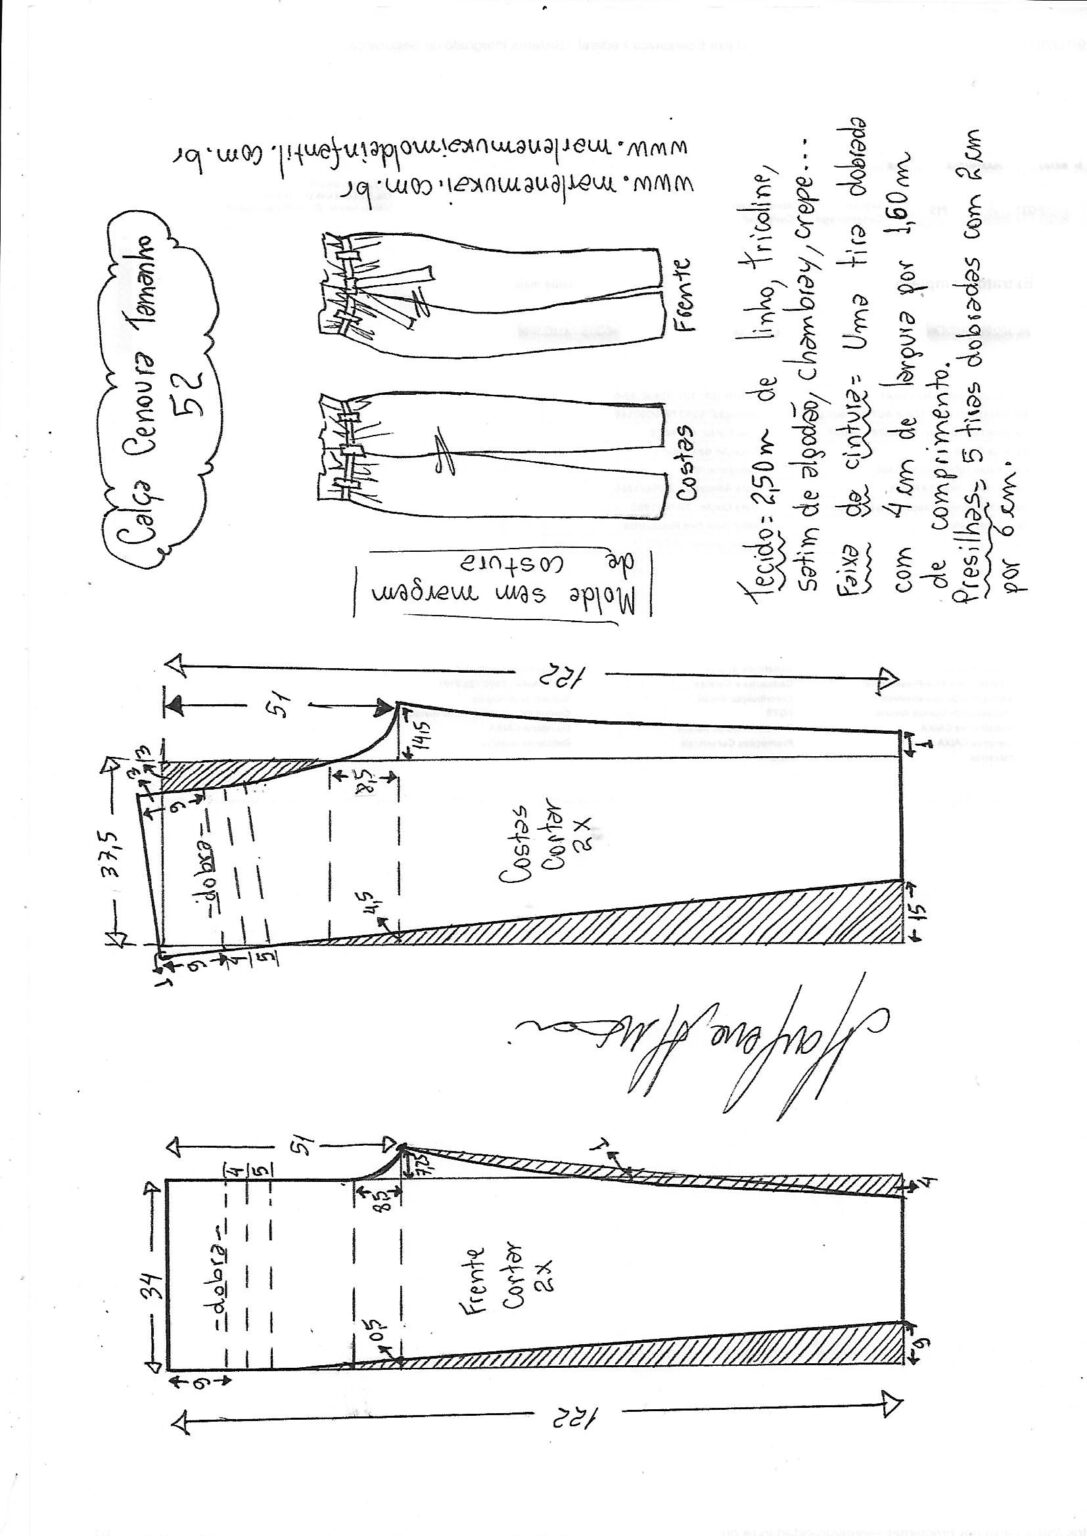 Calça Cenoura Tamanho
52
www.marlenemukai.com.br
www.marlenemukaimoldeinfantil.com.br
Frente
Costas
Molde sem margem
de costura
Tecido = 2,50m de linho, tricoline,
satim de algodão, chambray, crepe...
Faixa da cintura = Uma tira dobrada
com 4 cm de largura por 1,60m
de comprimento.
Presilhas = 5 tiras dobradas com 2 cm
por 6 cm.
122
51
37,5
3
3
9
14,5
8,5
1
-dobra-
Costas
Cortar
2X
4,5
1
9
4
5
15
Marlene Mukai
51
4
5
7,25
8,5
1
4
34
-dobra-
Frente
Cortar
2X
0,5
9
9
122